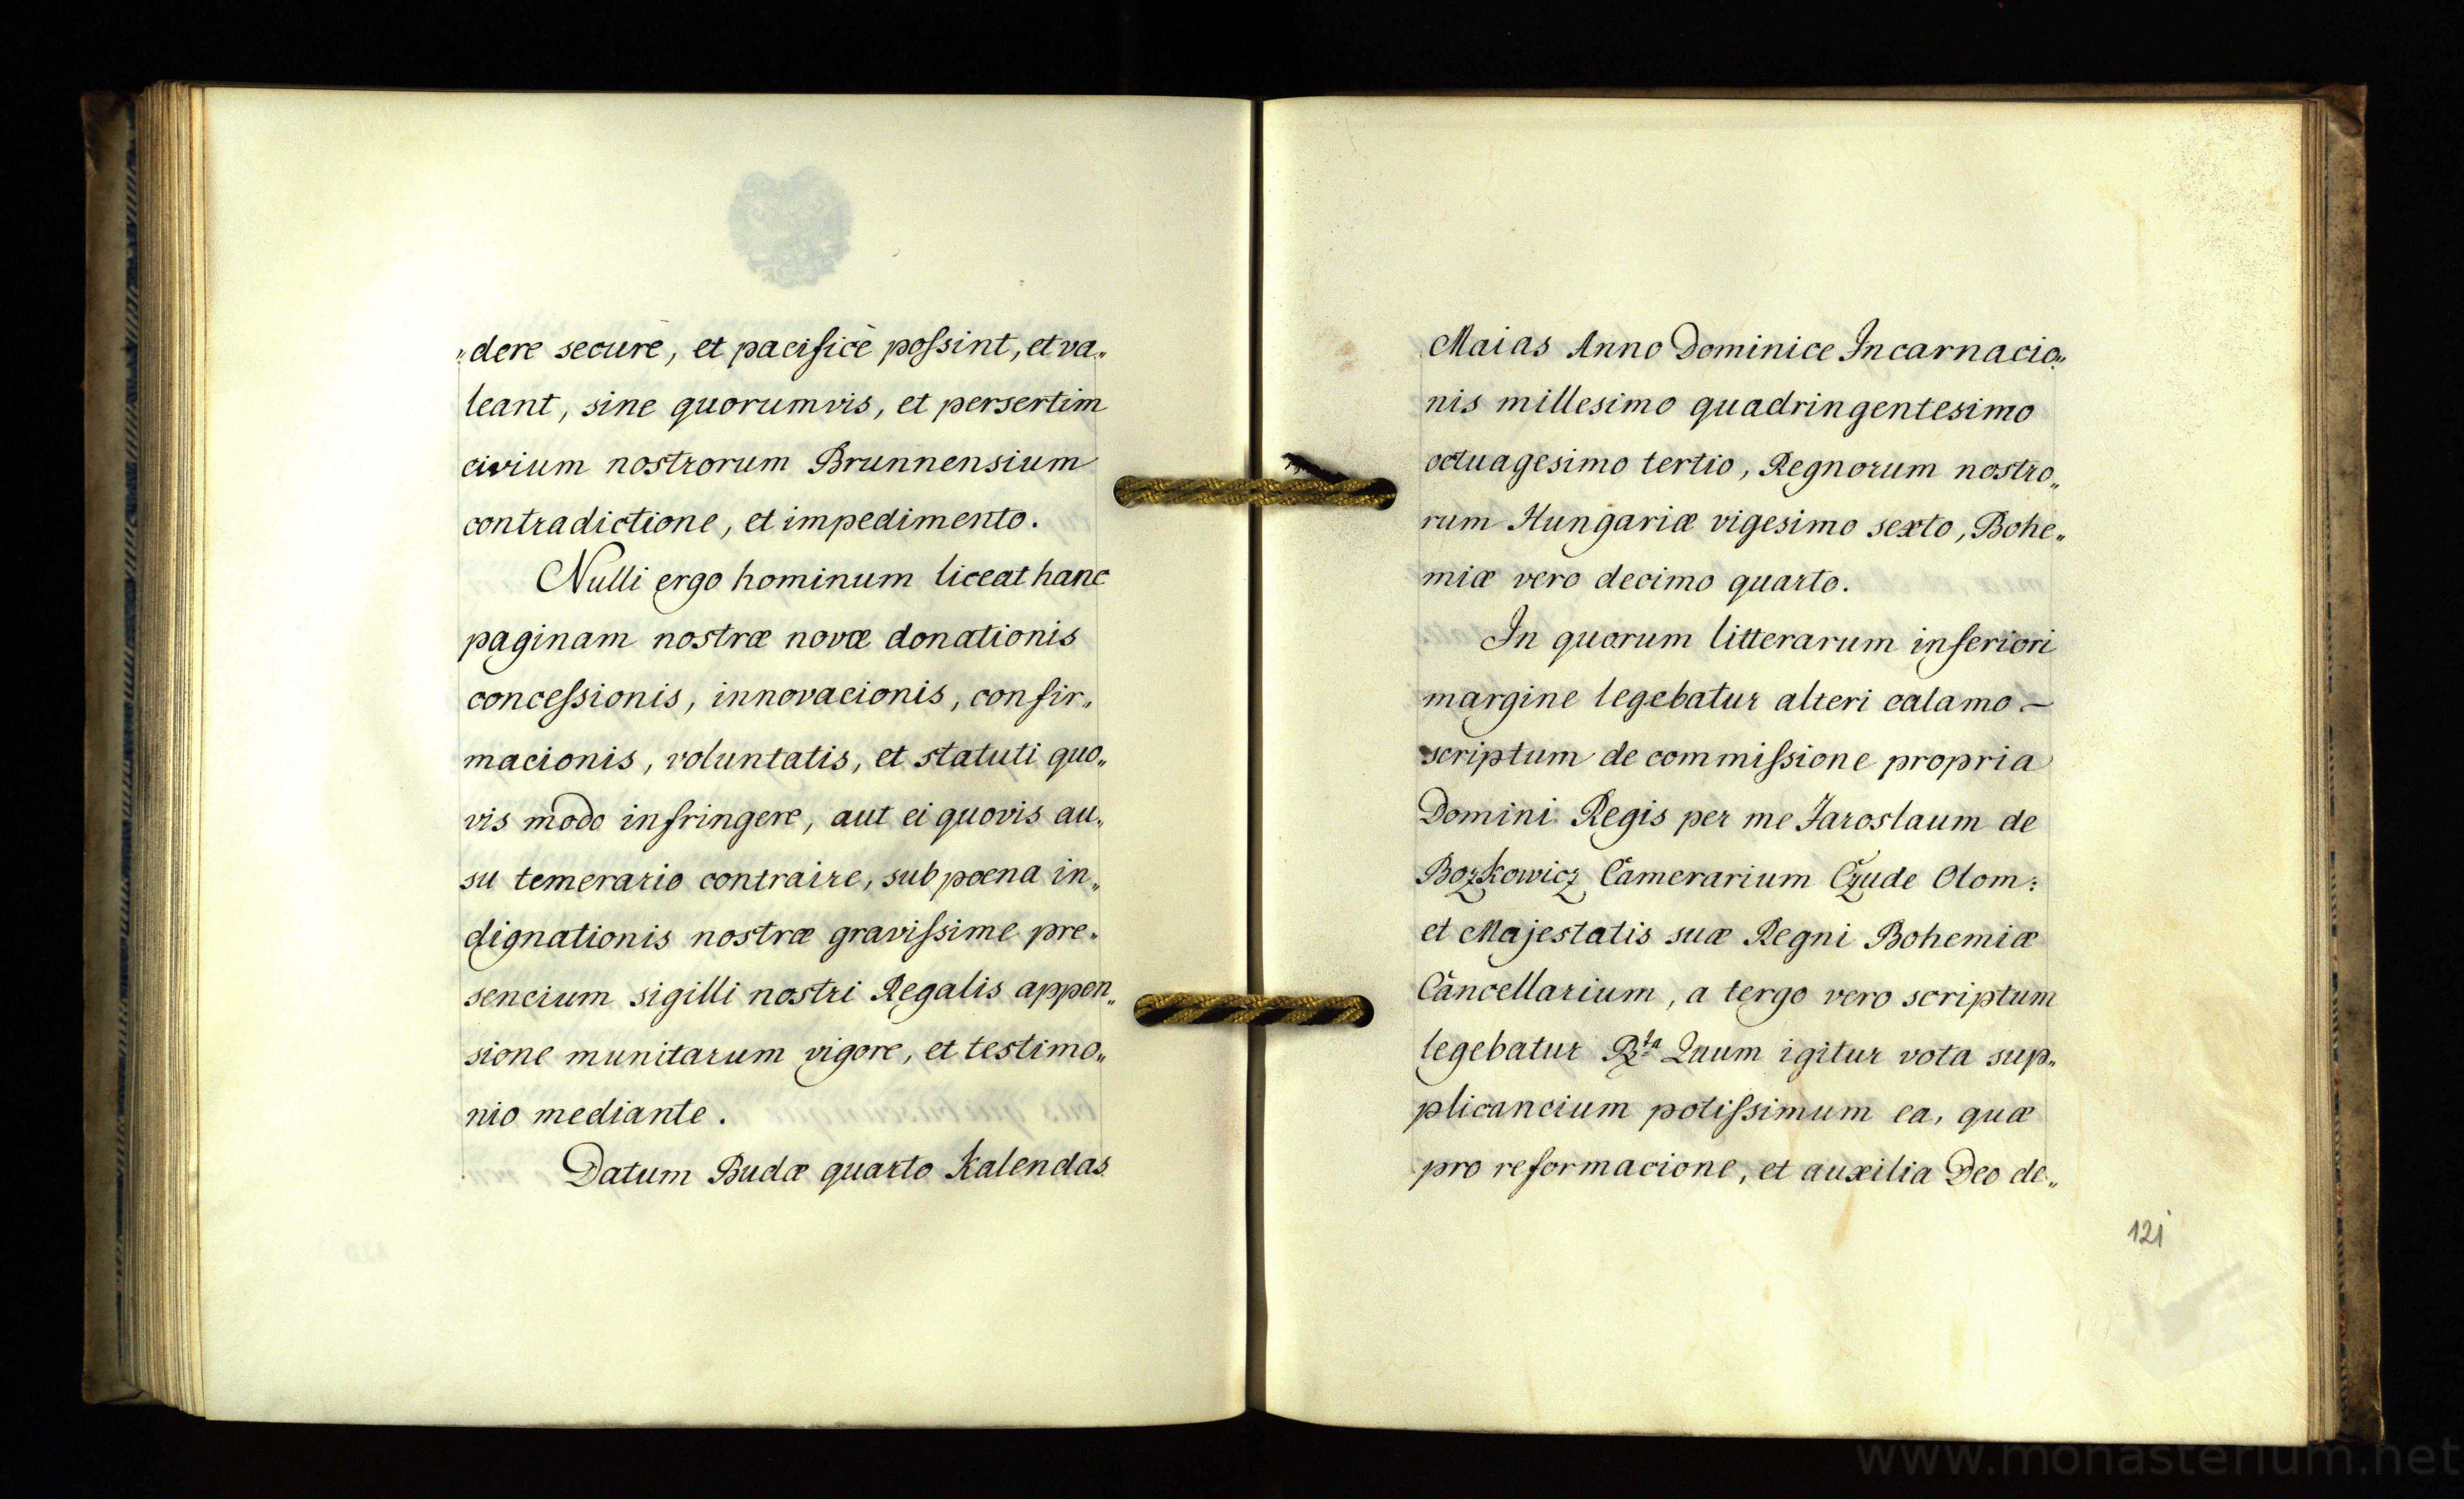 „dere securè, et pacificè possint, et va„
leant, sine quorumvis, et persertim
civium nostrorum Brunnensium
contradictione, et impedimento.
Nulli ergo hominum liceat hanc
paginam nostræ novæ donationis
concessionis, innovacionis, confir„
macionis, voluntatis, et statuti quo„
vis modo infringere, aut ei quovis au„
su temerario contraire, sub poena in„
dignationis nostræ gravissime pre„
sencium sigilli nostri Regalis appen„
sione munitarum vigore, et testimo„
nio mediante.
Datum Budæ quarto Kalendas
Maias Anno Dominice Incarnacio„
nis millesimo quadringentesimo
octuagesimo tertio, Regnorum nostro„
rum Hungariæ vigesimo sexto, Bohe„
miæ vero decimo quarto.
In quorum litterarum inferiori
margine legebatur alteri calamo –
scriptum de commissione propria
Domini Regis per me Jaroslaum de
Bozkowicz Camerarium Czude Olom:
et Majestatis suæ Regni Bohemiæ
Cancellarium, a tergo vero scriptum
legebatur Rta Quum igitur vota sup„
plicancium potissimum ea, quæ
pro reformacione, et auxilia Deo de„
121
www.monasterium.net